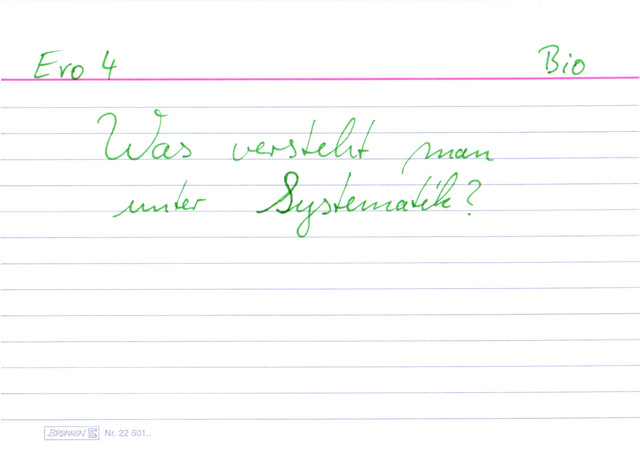 Evo 4 Bio
Was versteht man
unter Systematik?
BRUNNEN Nr. 22 601..